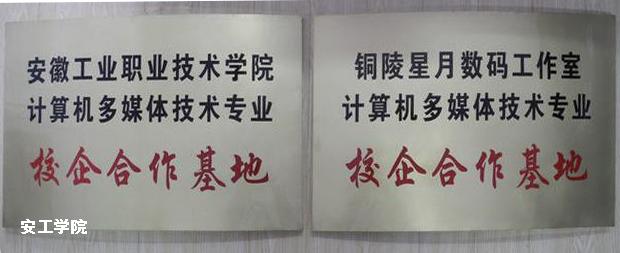 安徽工业职业技术学院
计算机多媒体技术专业
校企合作基地
铜陵星月数码工作室
计算机多媒体技术专业
校企合作基地
安工学院